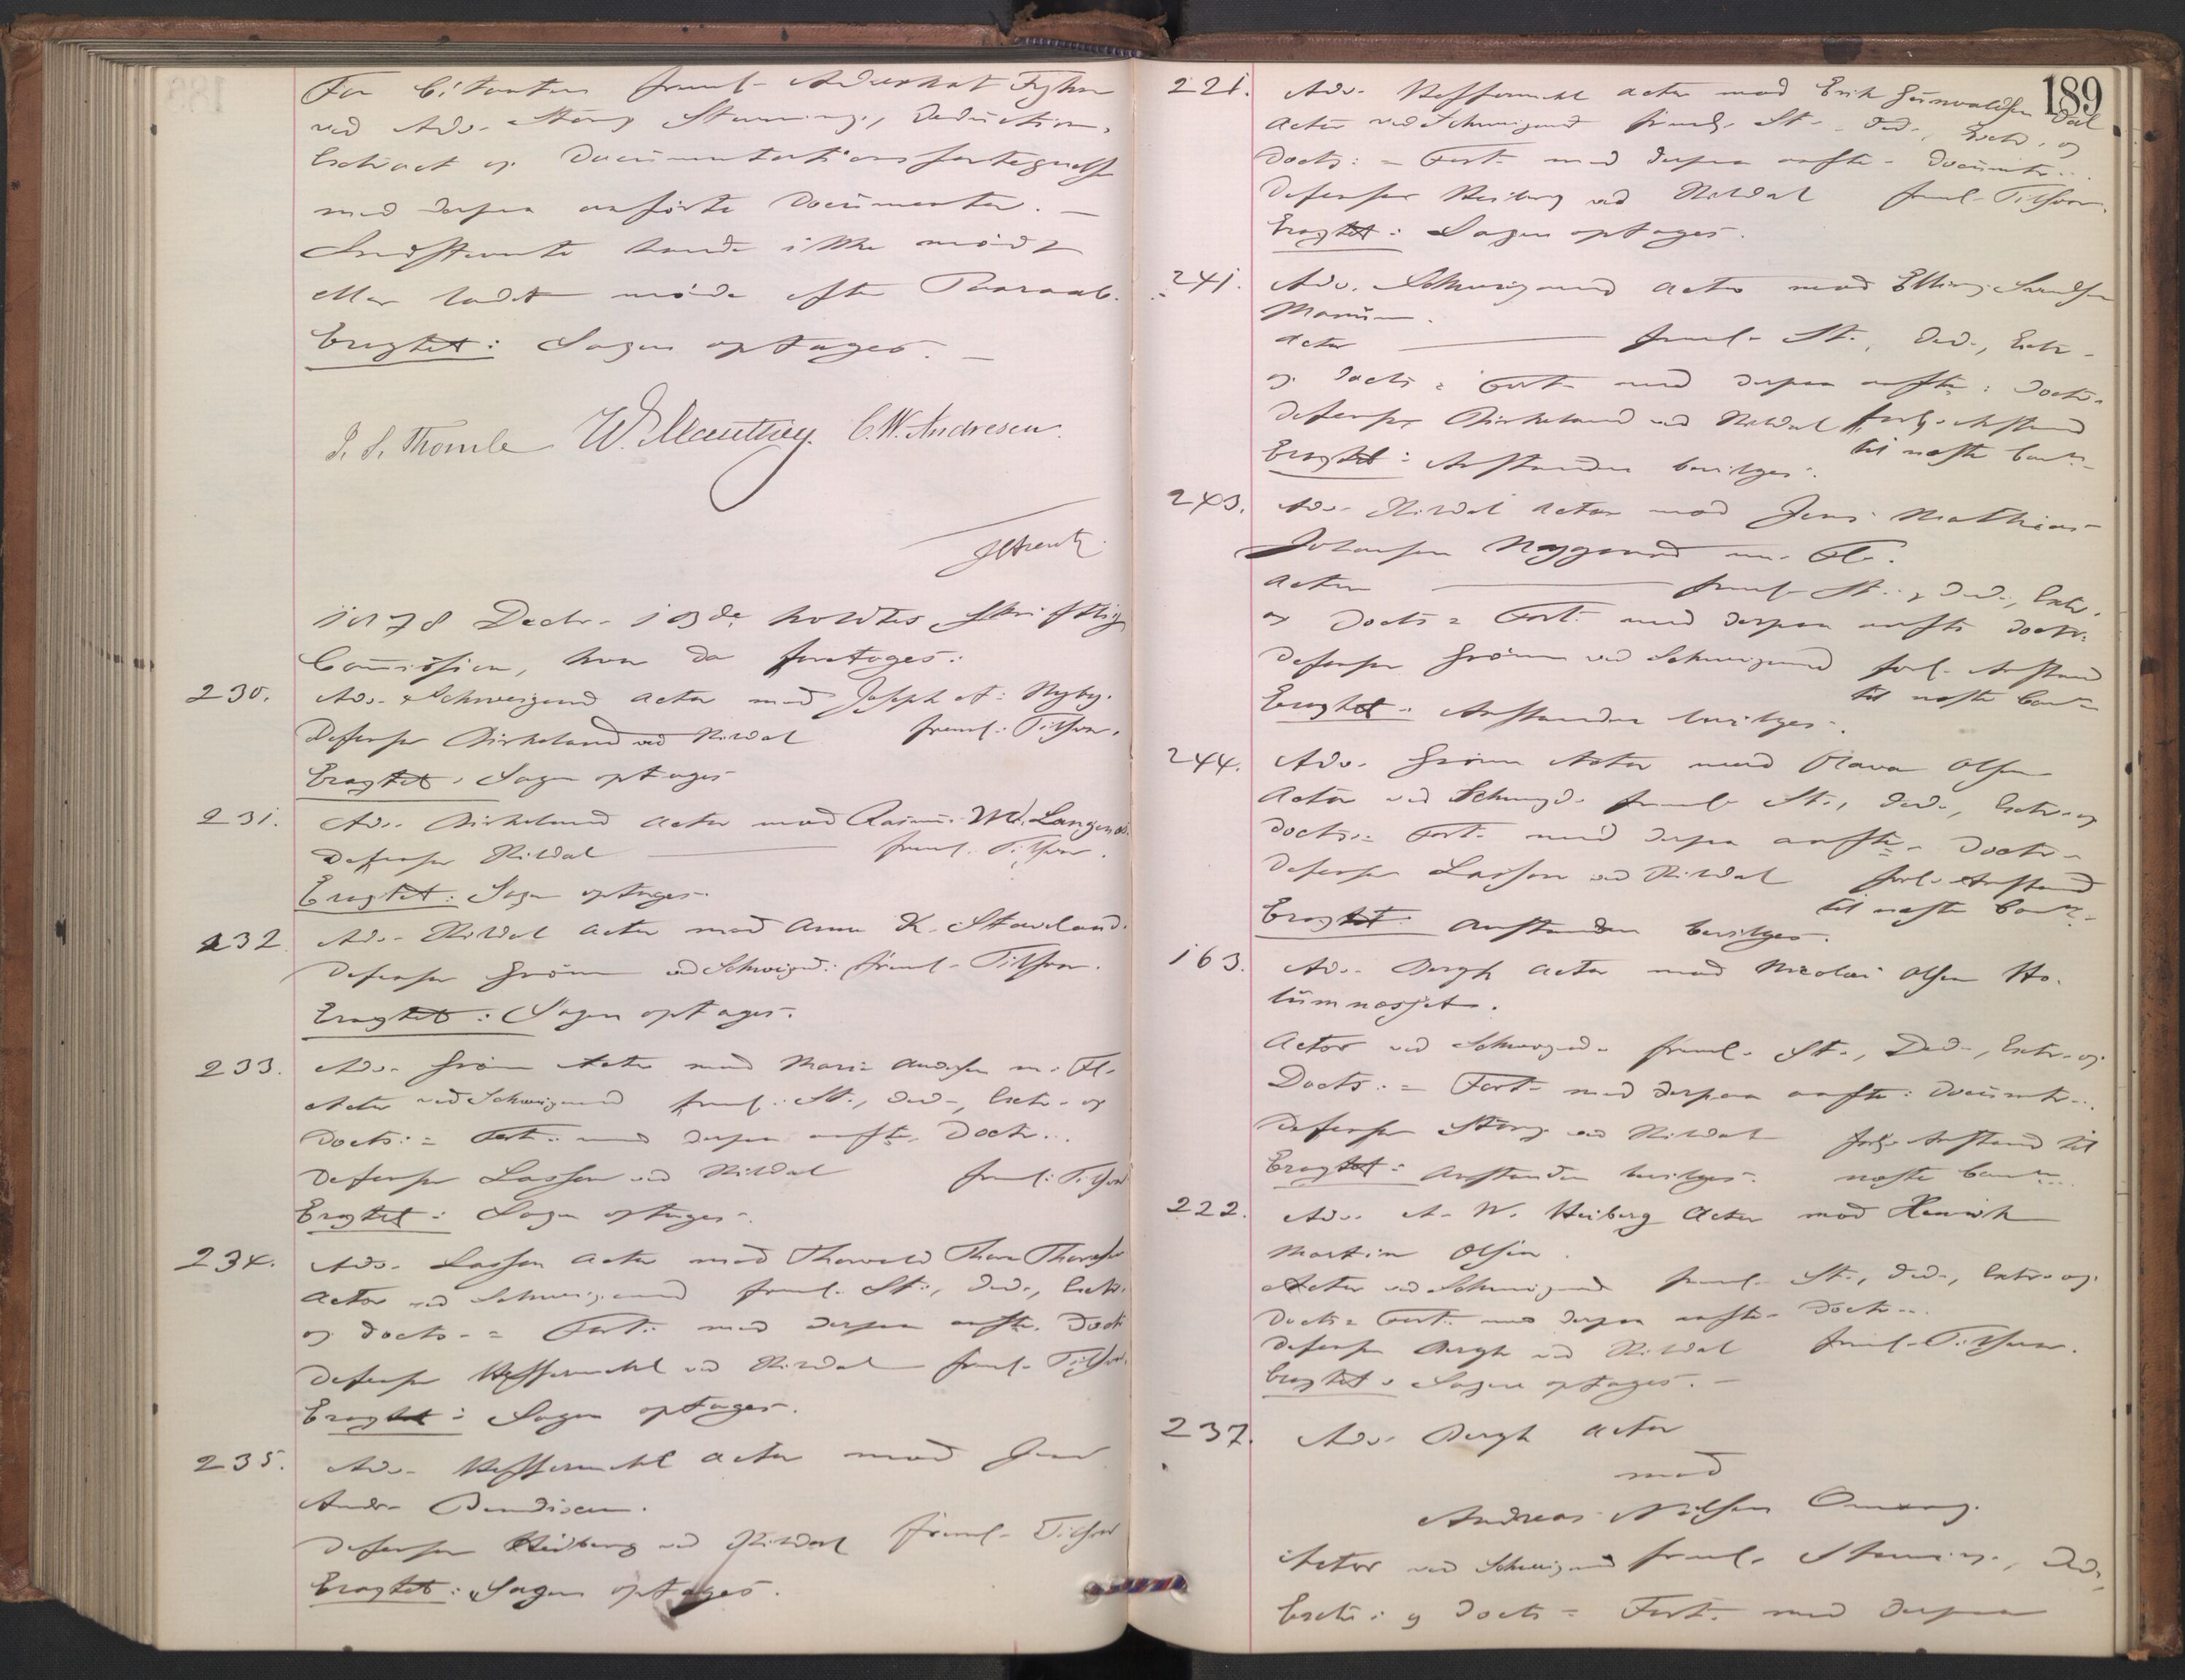 For Citanten freml. Advokat
ved Adv. Stang Stævning, Deduction,
Extract og Documentationsfortegnelse
med derpaa anførte Documenter. —
Indstevnte havde ikke mødt
eller ladet møde efter Paaraab.
Eragtet: Sagen optages. —
W. Manthey. C. W. Andresen.
1878 Decbr. 13de holdtes skriftlig
Commission, hvor da foretoges:
230. Adv. Schweigaard Actor mod Joseph A. Nyby.
Defensor Birkeland ved Rivdal freml. Tilsvar.
Eragtet: Sagen optages
231. Adv. Birkeland Actor mod Rasm. Md.
Defensor Rivdal — freml. Tilsvar.
Eragtet: Sagen optages.
232. Adv. Rivdal Actor mod Anne K. Staveland.
Defensor Grønn ved Schweigrd: freml. Tilsvar.
Eragtet: Sagen optages.
233. Adv. Grønn Actor mod Marie Andersen m. Fl.
Actor ved Schweigaard freml. St., Ded., Extr. og
Docts: = Fort: med derpaa anfte. Doctr..
Defensor Lassen ved Rivdal freml: Tilsvar
Eragtet: Sagen optages.
234. Adv. Lassen Actor mod Thorvald
Actor ved Schweigaard freml. St., Ded., Extr.
og Docts. = Fort: med derpaa anfte. Doct
Defensor Heffermehl ved Rivdal freml. Tilsvar.
Eragtet: Sagen optages.
235. Adv. Heffermehl Actor mod
Bendixen.
Defensor Heiberg ved Rivdal freml. Tilsvar
Eragtet: Sagen optages.
189
221. Adv. Heffermehl Actor mod Erik Gunvaldsen Dal
Actor ved Schweigaard freml. St., Ded., Extr. og
Docts: = Fort. med derpaa anfte. Documtr..
Defensor Heiberg ved Rivdal freml. Tilsvar.
Eragtet: Sagen optages.
241. Adv. Schweigaard Actor mod Elling
Actor — freml. St., Ded., Extr.
og Docts = Fort. med derpaa anfte: Doctr.
Defensor Birkeland ved Rivdal forl. Anstand
til næste Comn.
Eragtet: Anstanden bevilges.
243. Adv. Rivdal Actor mod Jens Mathias
Johansen Nygaard m. Fl.
Actor — freml. St., Ded., Extr.
og Docts = Fort. med derpaa anfte Doctr.
Defensor Grønn ved Schweigaard forl. Anstand
til næste Comn.
Eragtet: Anstanden bevilges.
244. Adv. Grønn Actor mod Olava Olsen
Actor ved Schweigd. freml. St., Ded., Extr. og
Docts. = Fort. med derpaa anfte. Doctr.
Defensor Lassen ved Rivdal forl. Anstand
til næste Comn.
Eragtet: Anstanden bevilges.
163. Adv. Bergh Actor mod Nicolai Olsen Ho-
lumnæsset.
Actor ved Schweigrd. freml. St., Ded., Extr. og
Docts. = Fort. med derpaa anfte: Documtr..
Defensor Stang ved Rivdal forl. Anstand til
Eragtet: Anstanden bevilges. næste Comn.
222. Adv. A. W. Heiberg Actor mod Henrik
Martin Olsen.
Actor ved Schweigaard freml. St., Ded., Extr. og
Docts = Fort. med derpaa anfte. Doctr..
Defensor Bergh ved Rivdal freml. Tilsvar.
Eragtet: Sagen optages. —
237. Adv. Bergh Actor
mod
Andreas Nilsen
Actor ved Schweigaard freml. Stævning, Ded.,
Extr. og Docts = Fort. med derpaa